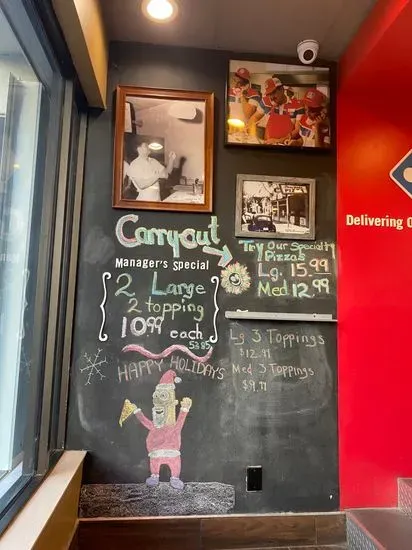 CarryOut
Manager's Special
2 Large
2 topping
10.99 each
5385
HAPPY HOLIDAYS
Try Our Specialty
Pizzas
Lg. 15.99
Med 12.99
Lg 3 Toppings
Med 3 Toppings
Delivering